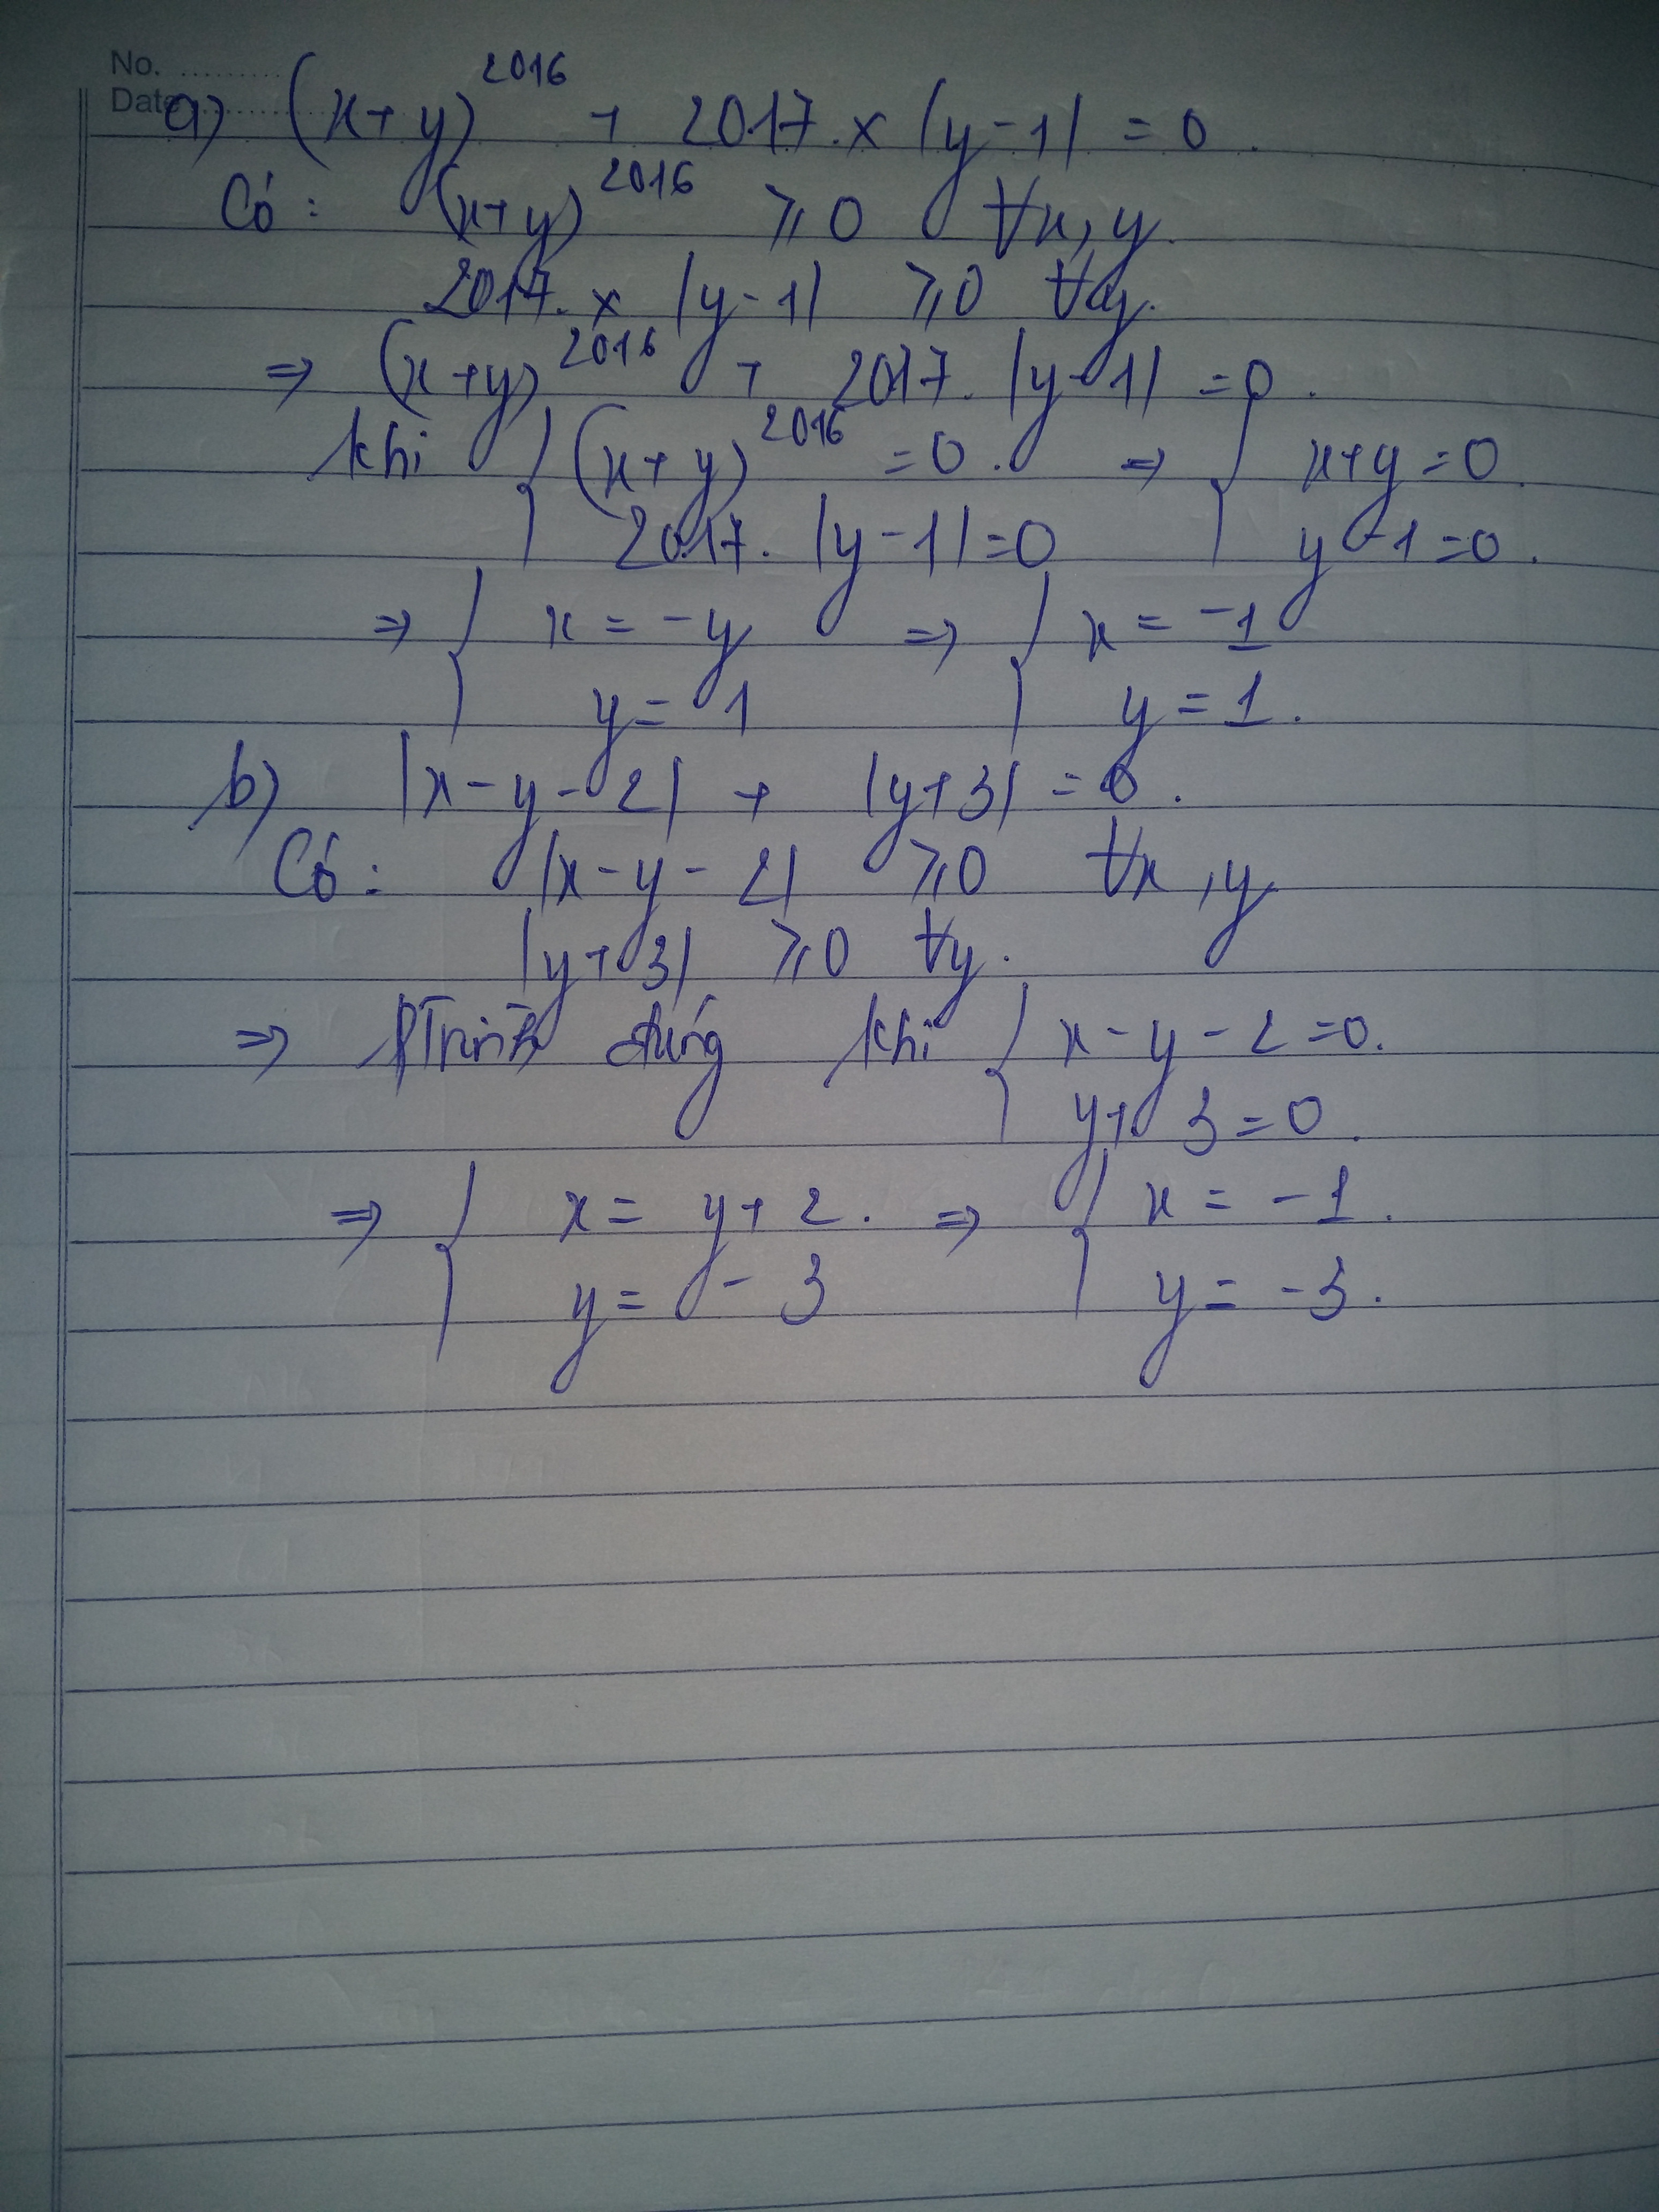 No. ..........
Date ..........
a) (x+y)^2016 + 2017. x |y-1| = 0.
Có: (x+y)^2016 ⩾ 0 ∀x, y.
2017. x |y-1| ⩾0 ∀y.
⇒ (x+y)^2016 + 2017. |y-1| = 0.
khi { (x+y)^2016 = 0. ⇒ { x+y = 0.
2017. |y-1| = 0 y-1 = 0.
⇒ { x = -y ⇒ { x = -1
y = 1 y = 1.
b) |x-y-2| + |y+3| = 0.
Có: |x-y-2| ⩾0 ∀x, y
|y+3| ⩾0 ∀y.
⇒ đúng khi { x-y-2=0.
y+3=0.
⇒ { x = y+2. ⇒ { x = -1.
y = -3 y = -3.